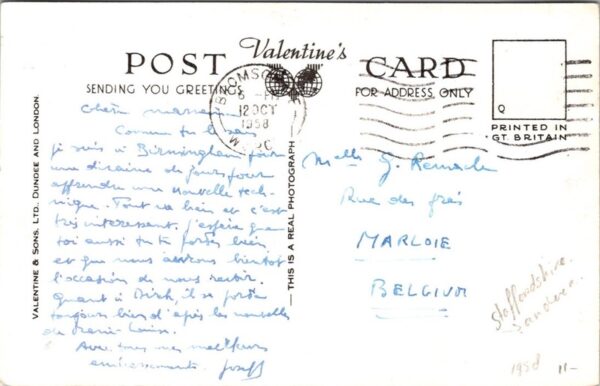 Valentine's
POST CARD
SENDING YOU GREETINGS
FOR ADDRESS ONLY
BROMSGROVE
12 OCT
1958
WORC
Q
PRINTED IN
GT. BRITAIN
VALENTINE & SONS. LTD. DUNDEE AND LONDON.
— THIS IS A REAL PHOTOGRAPH —
Chère marraine
Comme tu le sais
je suis à Birmingham pour
une dizaine de jours pour
apprendre une nouvelle tech-
nique. Tout va bien et c'est
très intéressant. j'espère que
toi aussi tu te portes bien
et que nous aurons bientôt
l'occasion de nous revoir.
Quant à Dirk, il se porte
toujours bien d'après les nouvelles
de Marie-Louise.
Avec mes meilleurs
embrassements. Joseph
Melle G. Remacle
Rue des prés
MARLOIE
BELGIUM
Staffordshire
1958 11-